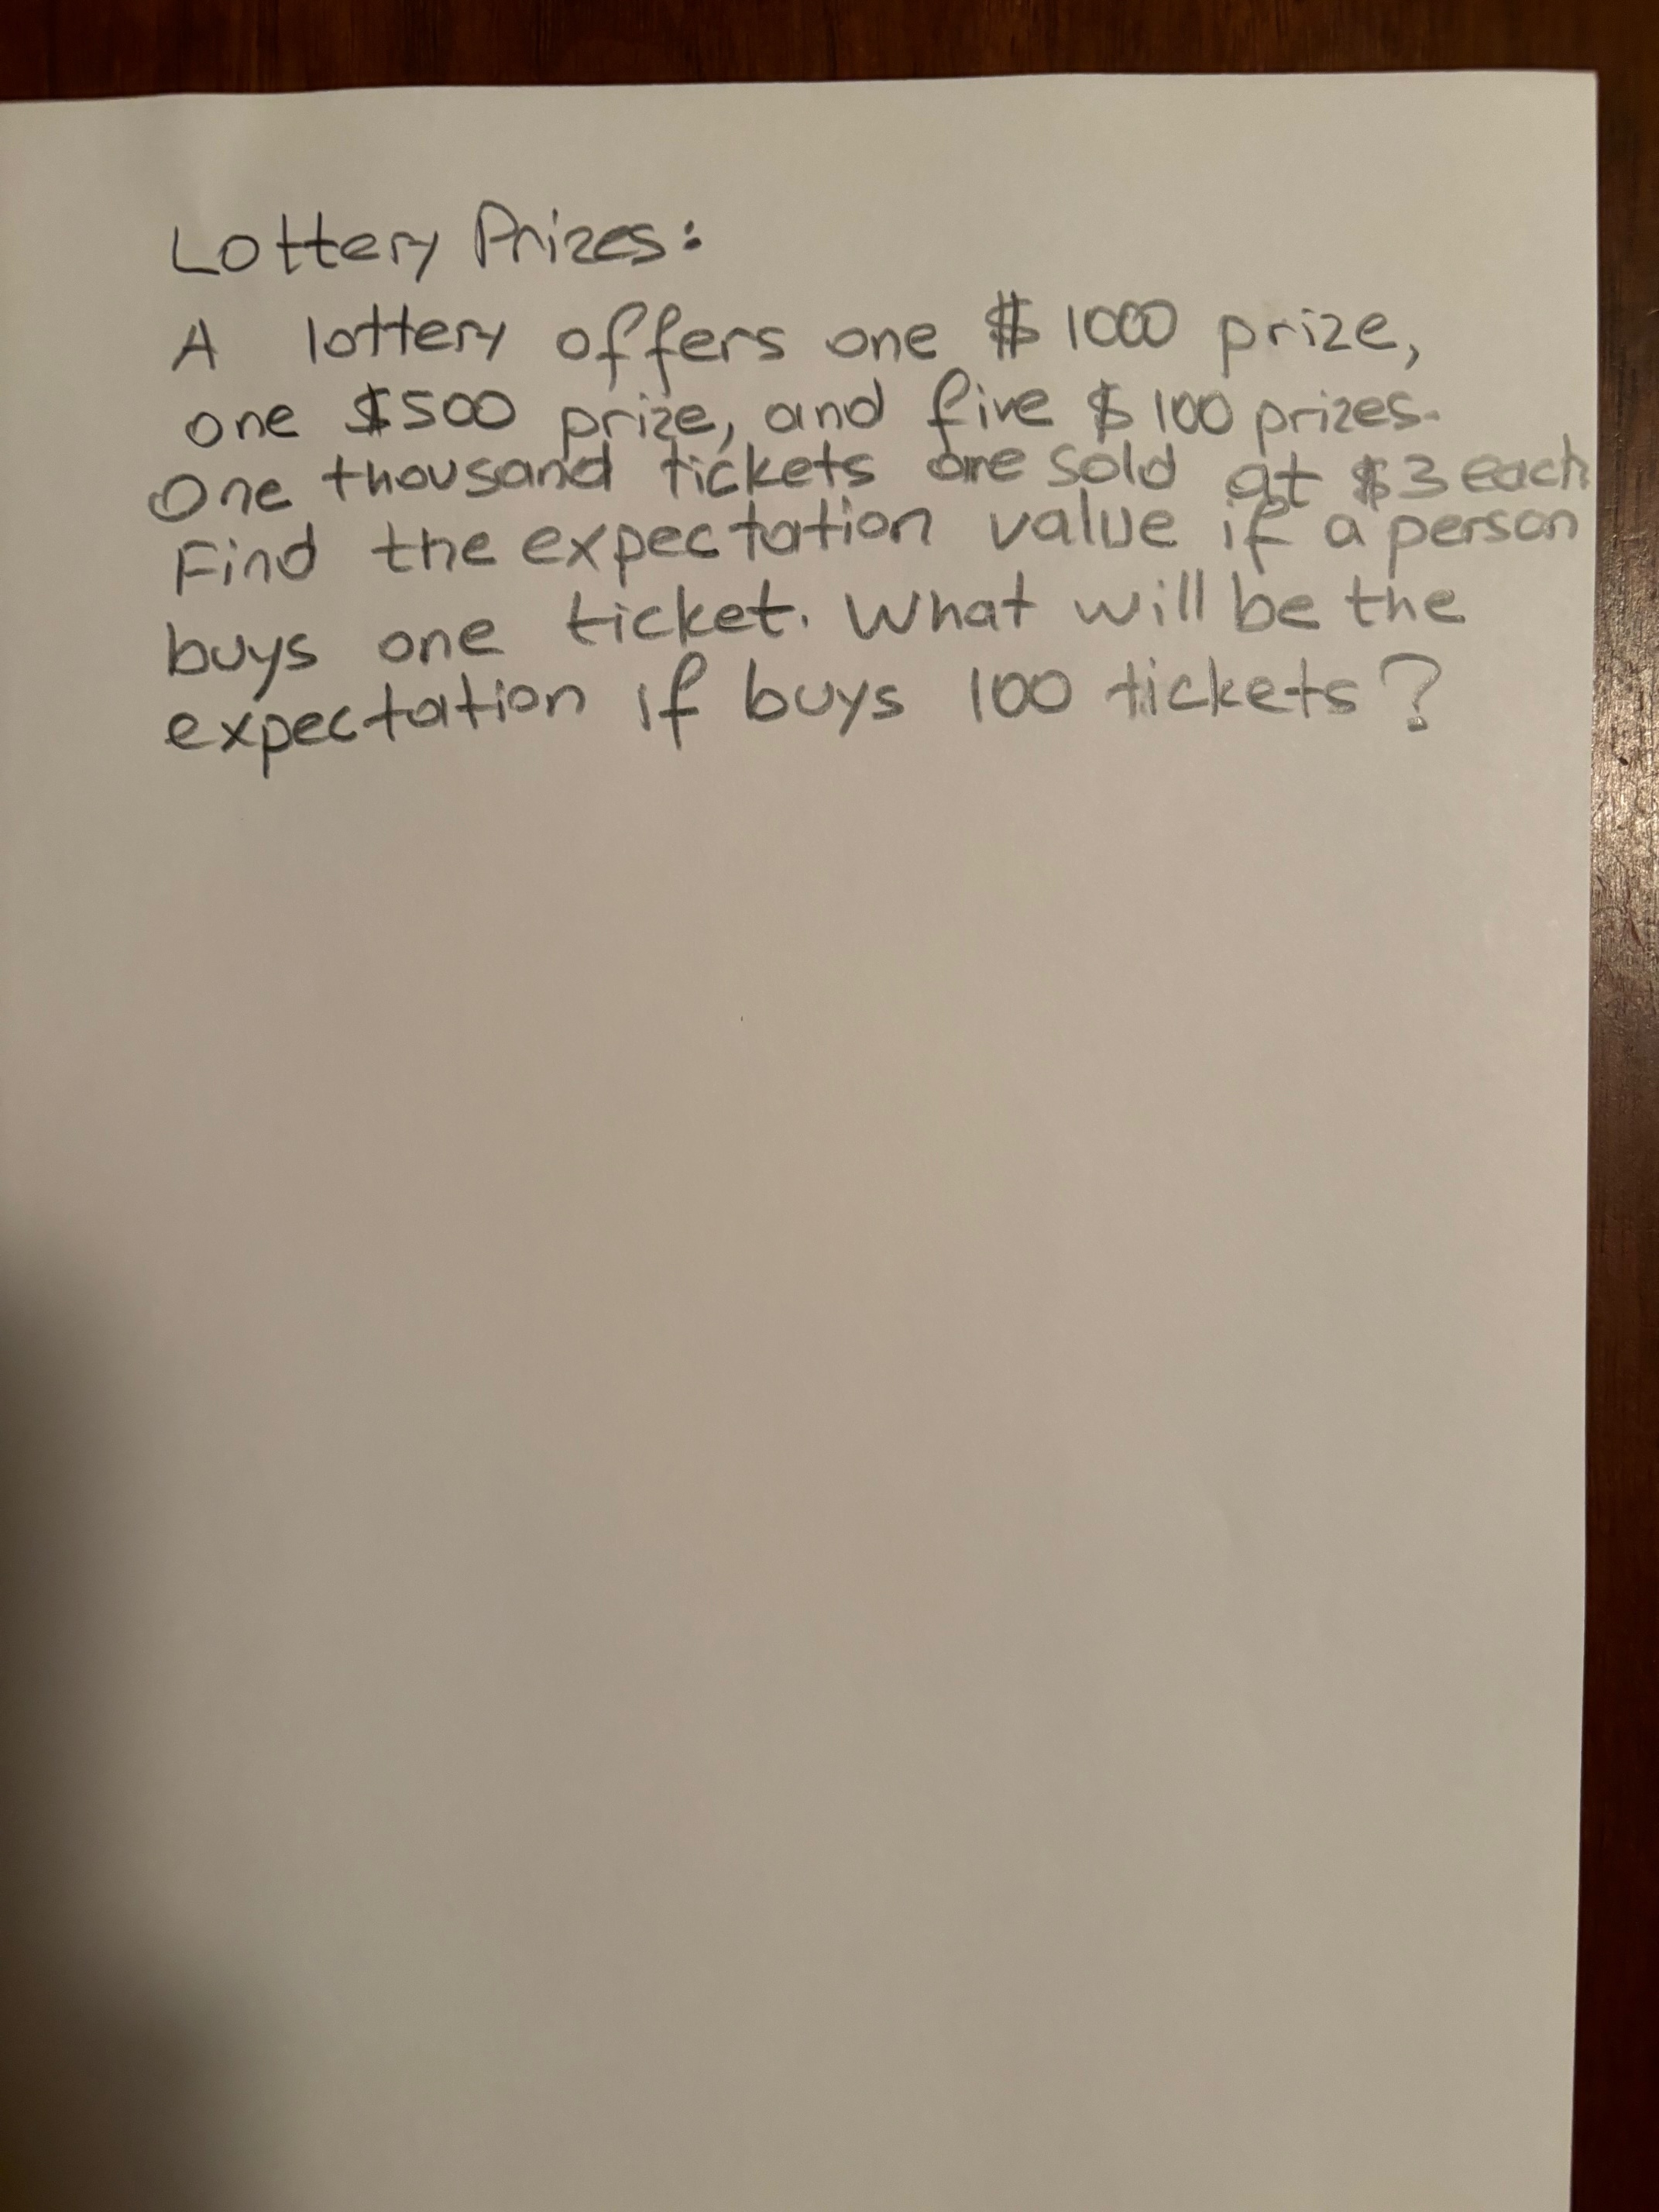 Lottery Prizes:
A lottery offers one $1000 prize,
one $500 prize, and five $100 prizes.
One thousand tickets are sold at $3 each
Find the expectation value if a person
buys one ticket. What will be the
expectation if buys 100 tickets?